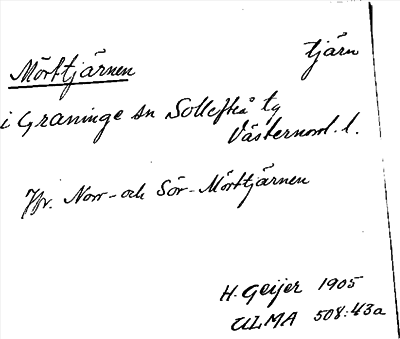 Mörttjärnen tjärn
i Graninge sn Sollefteå tg
Västernorrl. l.
Jfr. Norr- och Sör-Mörttjärnen
H. Geijer 1905
ULMA 508:43a